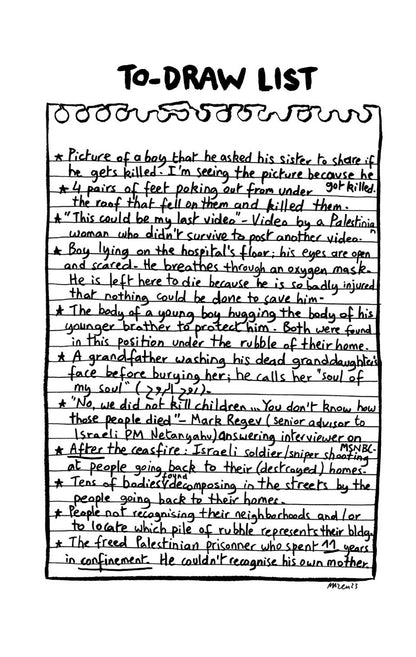 TO-DRAW LIST
★ Picture of a boy that he asked his sister to share if
he gets killed. I'm seeing the picture because he
got killed.
★ 4 pairs of feet poking out from under
the roof that fell on them and killed them.
★ "This could be my last video" - Video by a Palestinian
woman who didn't survive to post another video.
★ Boy lying on the hospital's floor; his eyes are open
and scared. He breathes through an oxygen mask.
He is left here to die because he is so badly injured
that nothing could be done to save him.
★ The body of a young boy hugging the body of his
younger brother to protect him. Both were found
in this position under the rubble of their home.
★ A grandfather washing his dead granddaughter's
face before burying her; he calls her "soul of
my soul" (روح الروح).
★ "No, we did not kill children... You don't know how
those people died" - Mark Regev (senior advisor to
Israeli PM Netanyahu) answering interviewer on
MSNBC.
★ After the ceasfire: Israeli soldier/sniper shooting
at people going back to their (destroyed) homes.
★ Tens of bodies found decomposing in the streets by the
people going back to their homes.
★ People not recognising their neighborhoods and/or
to locate which pile of rubble represents their bldg.
★ The freed Palestinian prisonner who spent 11 years
in confinement. He couldn't recognise his own mother.
MAZEN23